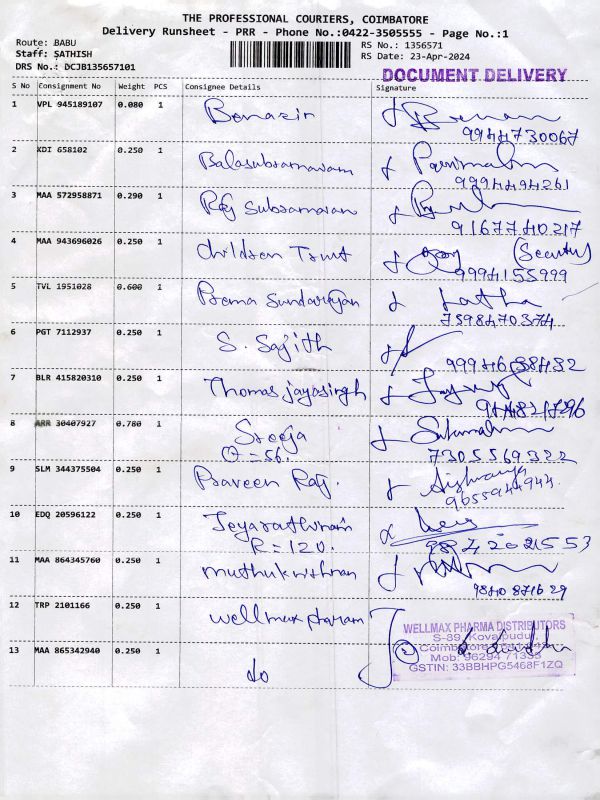 THE PROFESSIONAL COURIERS, COIMBATORE
Delivery Runsheet - PRR - Phone No.:0422-3505555 - Page No.:1
Route: BABU RS No.: 1356571
Staff: SATHISH RS Date: 23-Apr-2024
DRS No.: DCJB135657101
DOCUMENT DELIVERY
S No Consignment No Weight PCS Consignee Details Signature
1 VPL 945189107 0.080 1 Benazir
9944730067
2 KDI 658102 0.250 1 Balasubramaniam
9994494261
3 MAA 572958871 0.290 1 Raj Subramanian
9167740217
4 MAA 943696026 0.250 1 Children Trust (Security)
9994155999
5 TVL 1951028 0.600 1 Prema Sundarajan Latha
7598470374
6 PGT 7112937 0.250 1 S. Sajith
7 BLR 415820310 0.250 1 Thomas jayasingh
8 ARR 30407927 0.780 1 Sreeja
7305569322
9 SLM 344375504 0.250 1 Praveen Raj. Aishwarya
9655944944
10 EDQ 20596122 0.250 1 Jeyarathinam
R = 120.
11 MAA 864345760 0.250 1 muthukrishnan
9840871629
12 TRP 2101166 0.250 1 wellmax pharam
WELLMAX PHARMA DISTRIBUTORS
S-39, Kovaipudur,
13 MAA 865342940 0.250 1 do
Mob: 96294 71333
GSTIN: 33BBHPG5468F1ZQ